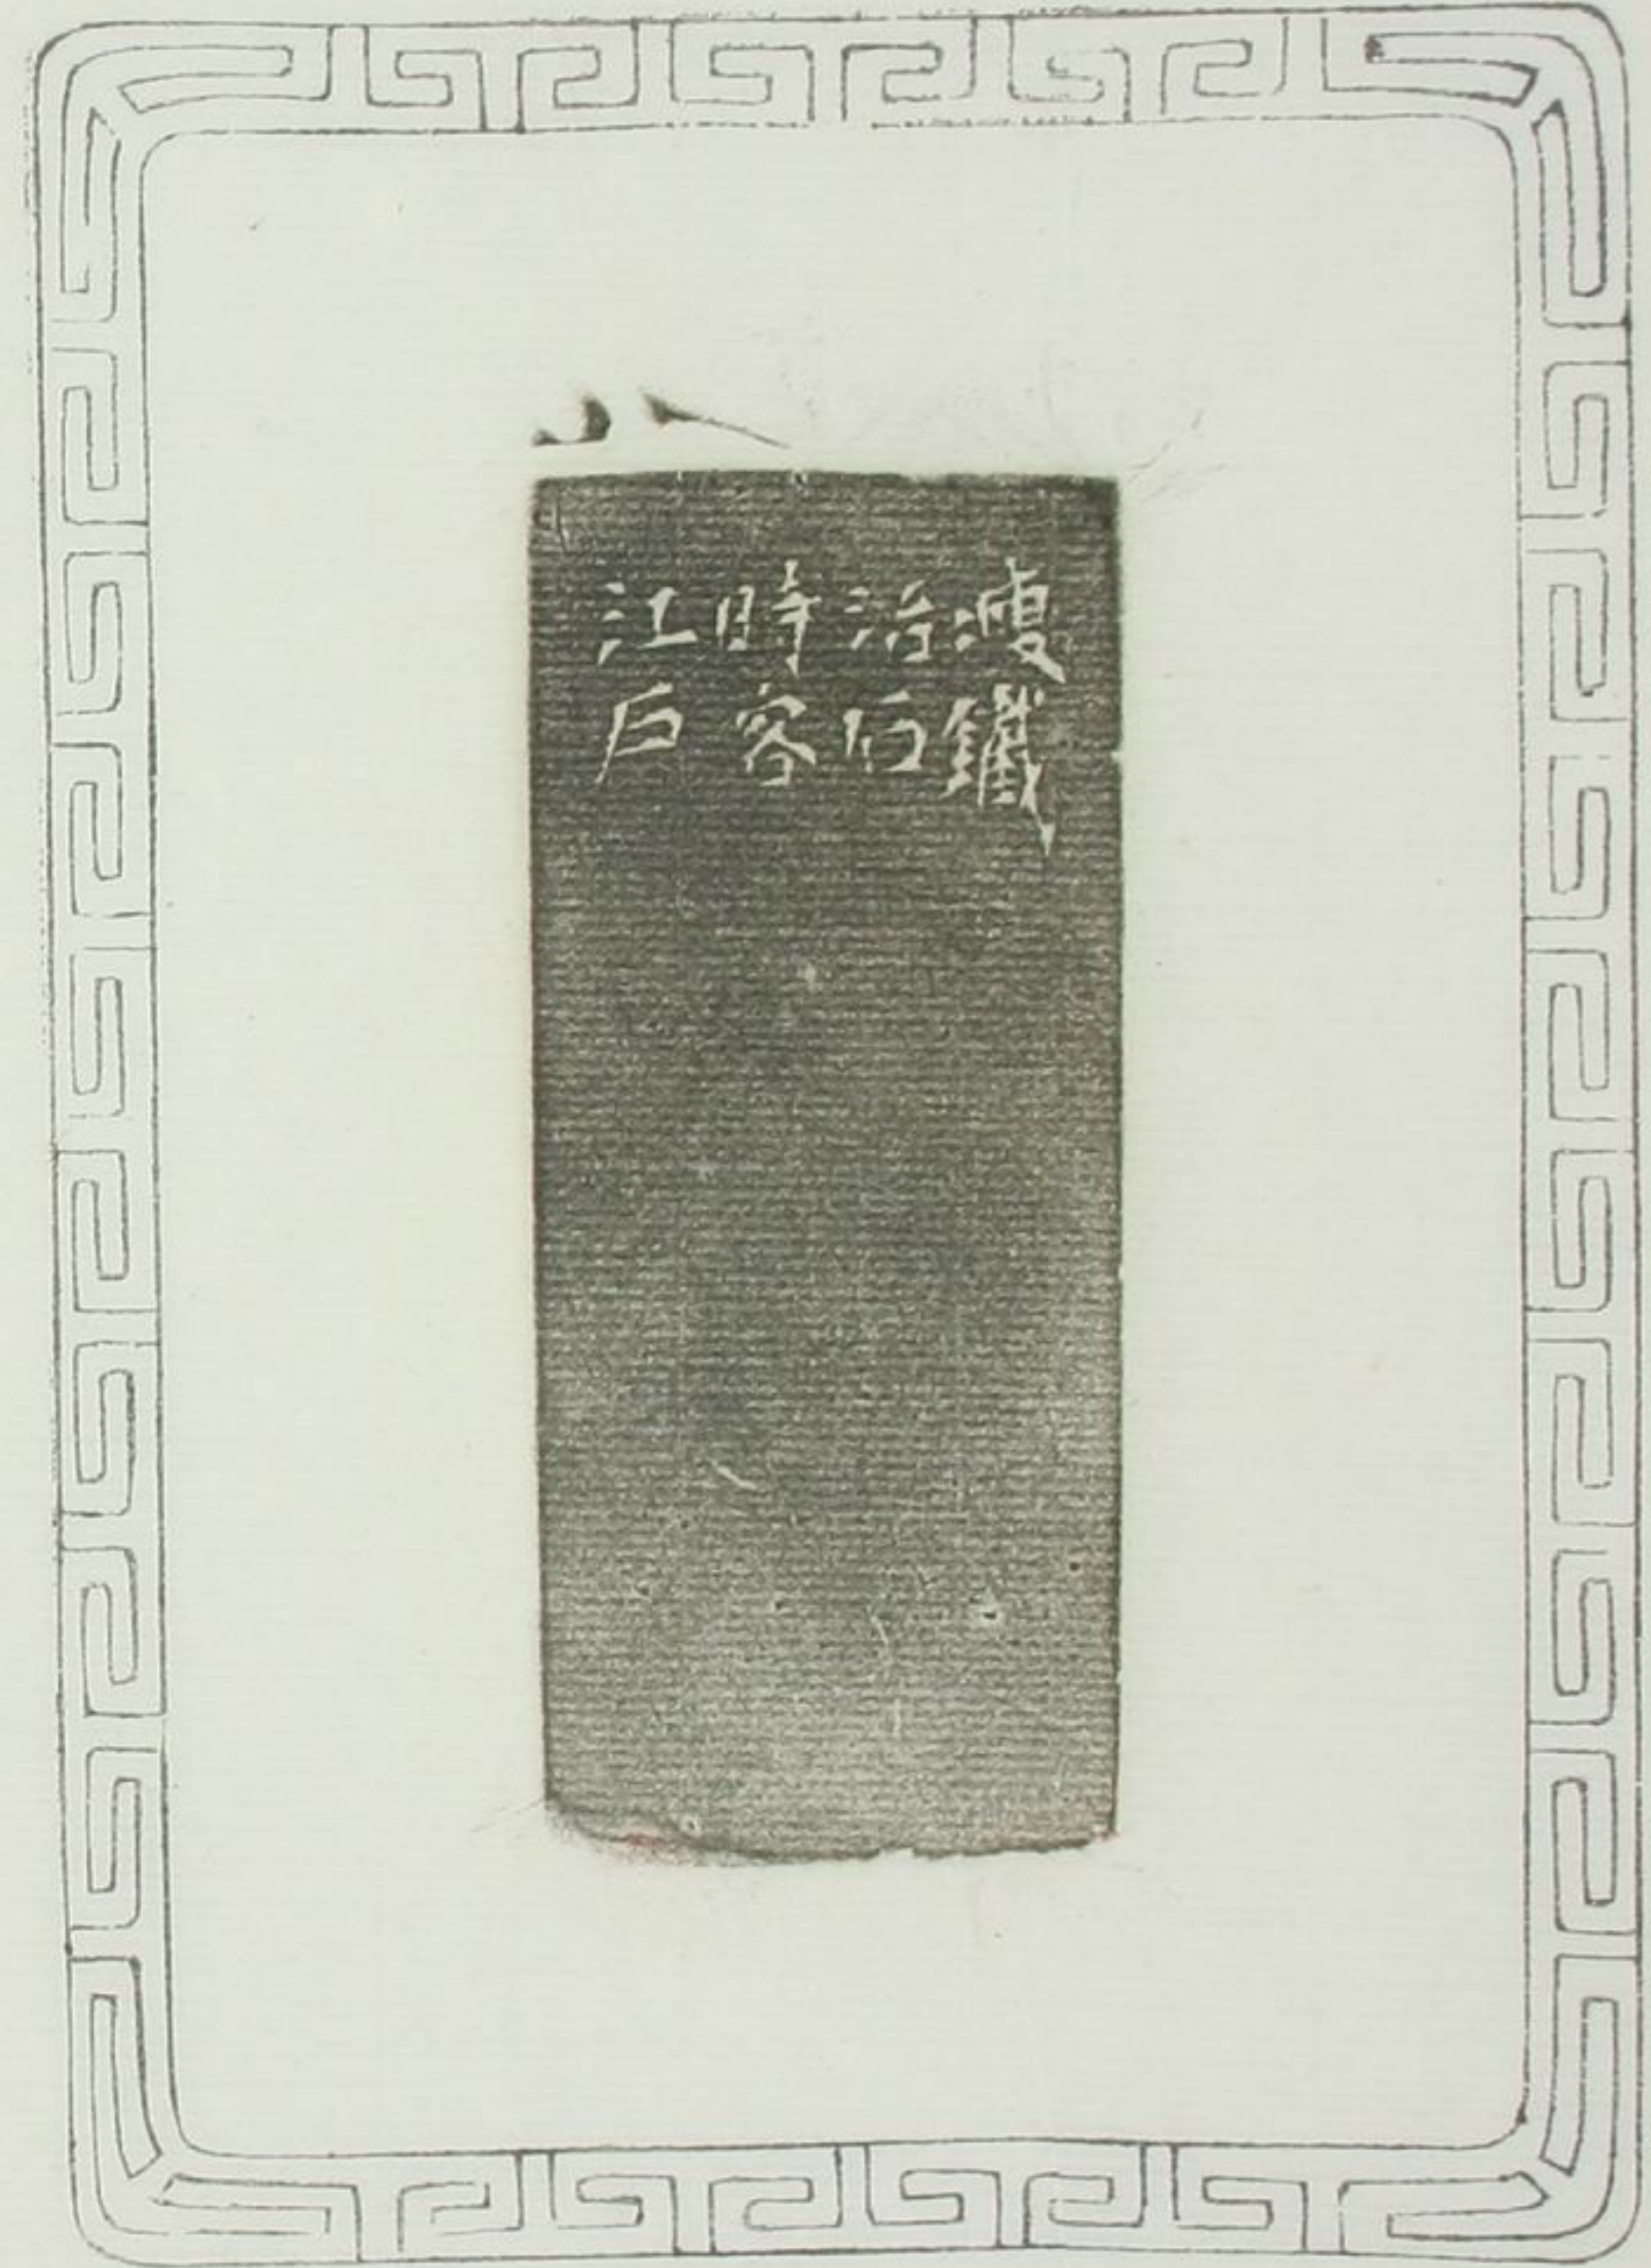 瘦鐵
治石
時客
江戶